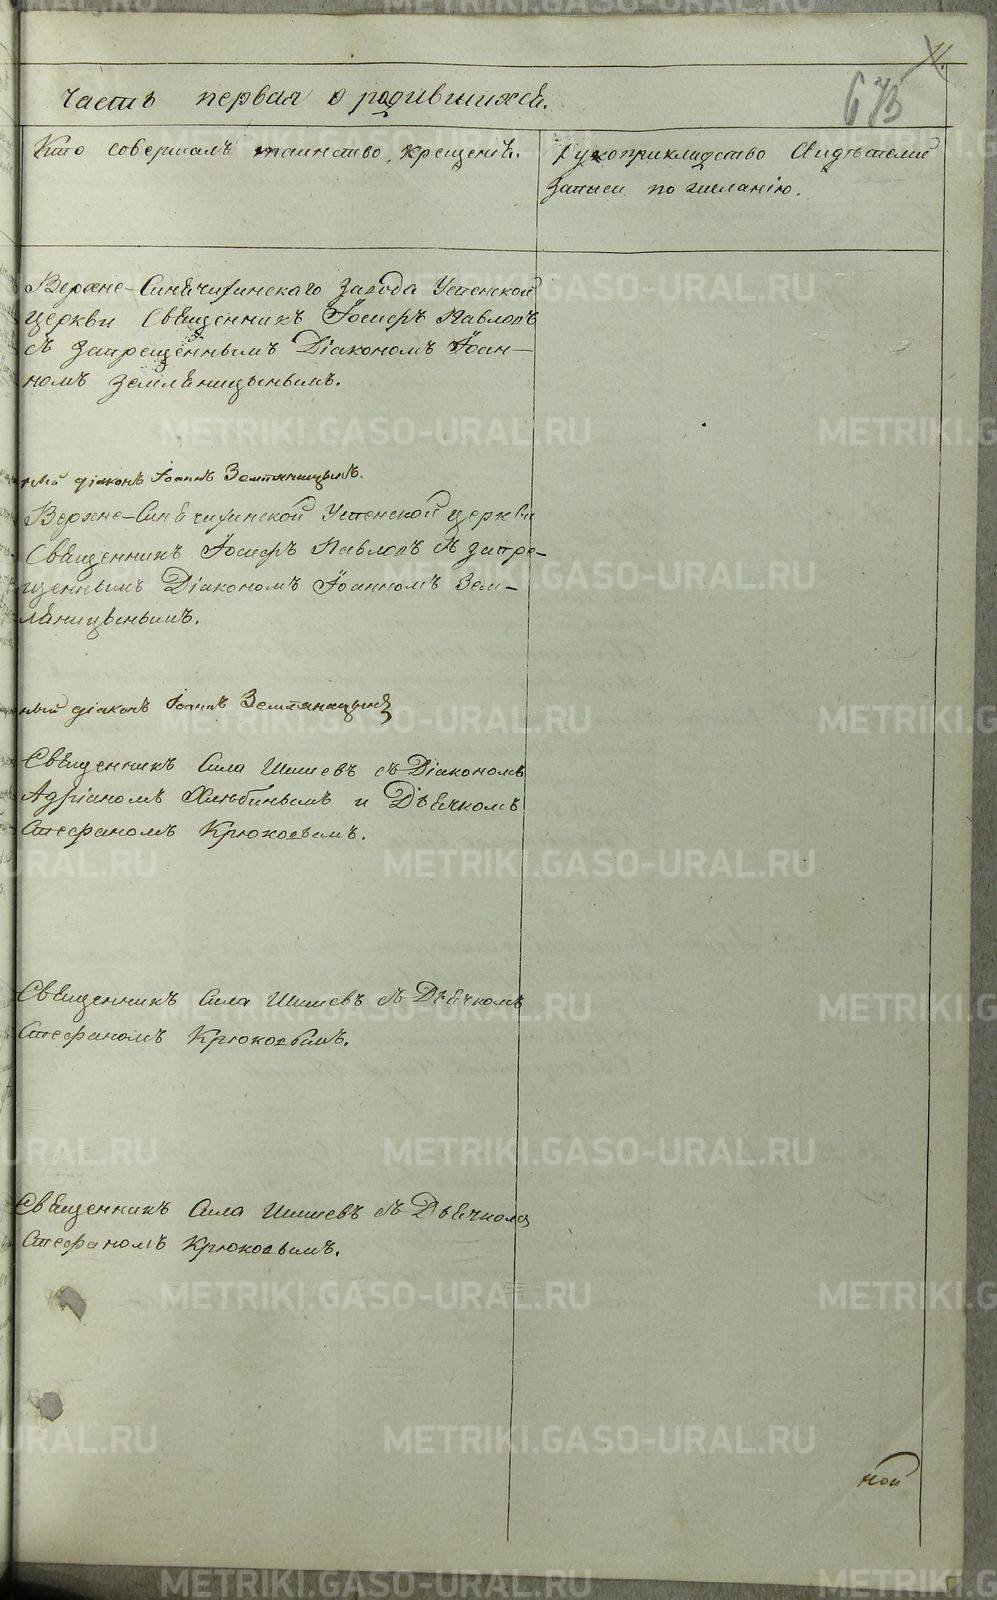 11.
673
Часть первая о родившихся.
Кто совершалъ таинство крещенія.
Рукоприкладство свидѣтелей
записи по желанію.
Верхне-Синячихинскаго завода Успенской
церкви Священникъ Іосифъ Павловъ
съ запрещеннымъ Діакономъ Іоан-
номъ Земляницынымъ.
ный діаконъ Іоаннъ Земляницынъ.
Верхне-Синячихинской Успенской церкви
Священникъ Іосифъ Павловъ съ запре-
щеннымъ Діакономъ Іоанномъ Зем-
ляницынымъ.
ный діаконъ Іоаннъ Земляницынъ
Священникъ Сила Шишевъ съ Діакономъ
Адріаномъ Хлыбинымъ и Дьячкомъ
Стефаномъ Крюковымъ.
Священникъ Сила Шишевъ съ Дьячкомъ
Стефаномъ Крюковымъ.
Священникъ Сила Шишевъ съ Дьячкомъ
Стефаномъ Крюковымъ.
ной
METRIKI.GASO-URAL.RU